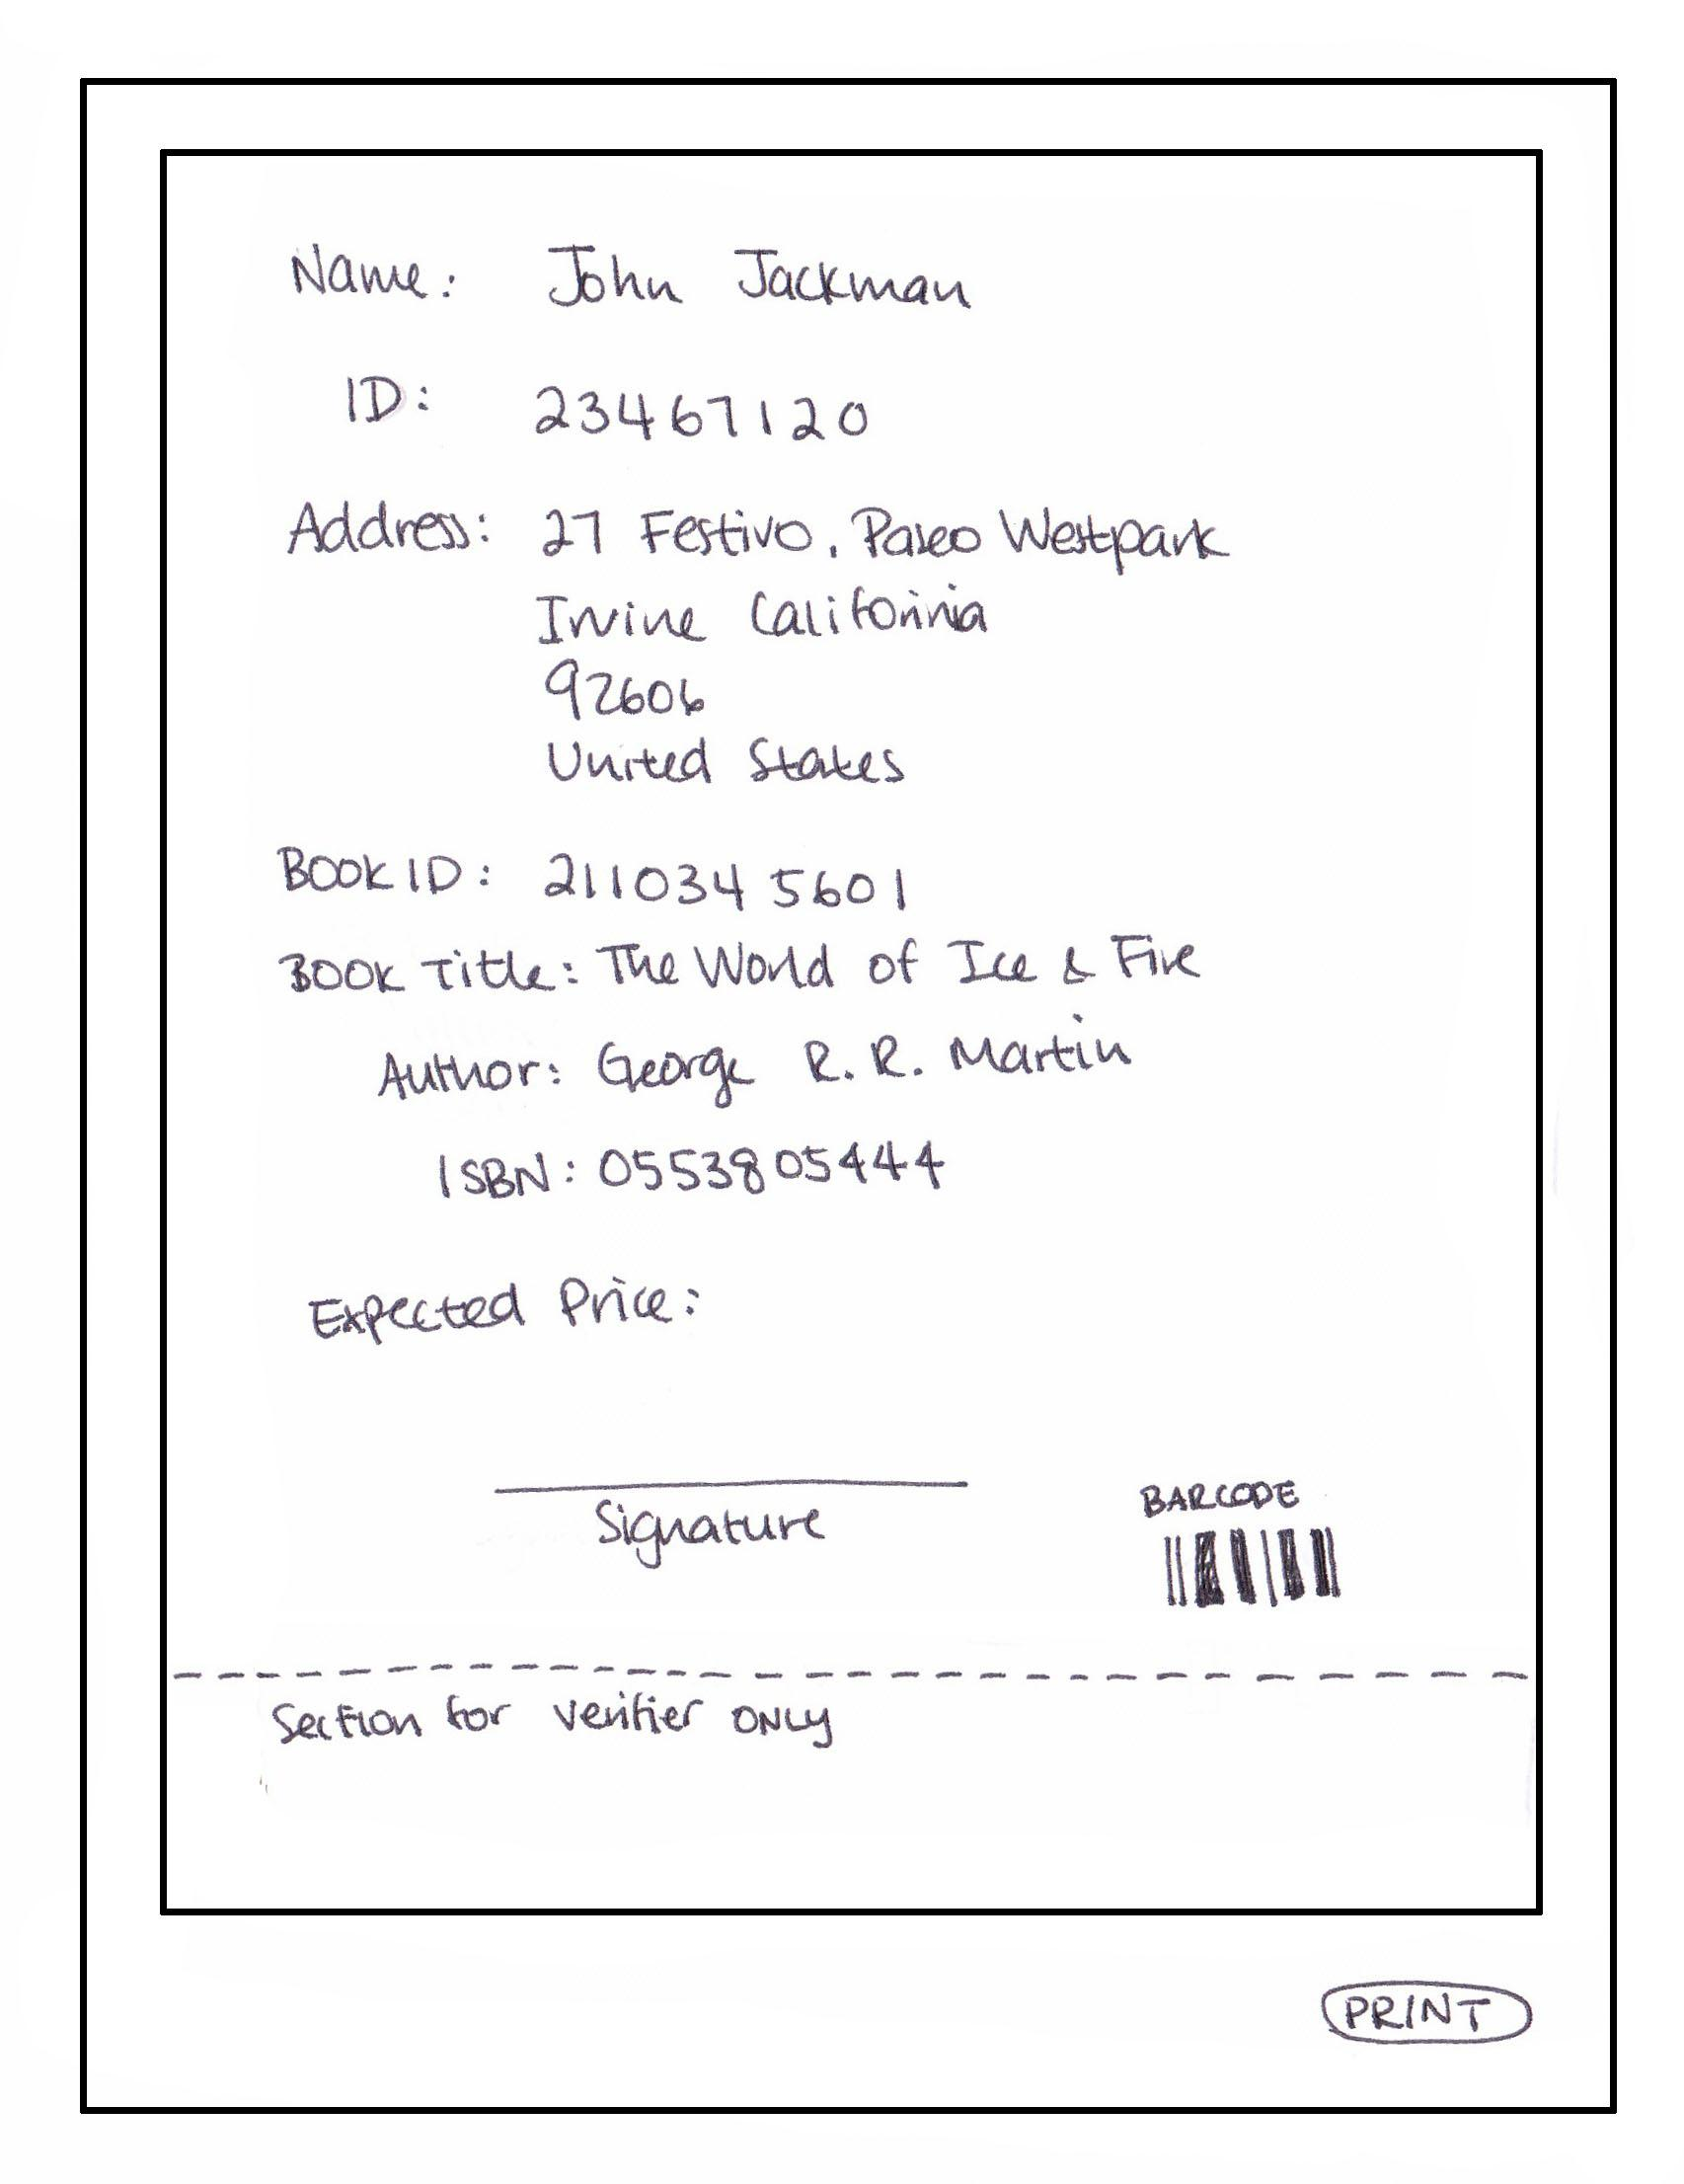 Name: John Jackman
ID: 23467120
Address: 27 Festivo, Paseo Westpark
Irvine California
92606
United States
BOOK ID: 2110345601
BOOK Title: The World of Ice & Fire
Author: George R. R. Martin
ISBN: 0553805444
Expected Price:
Signature
BARCODE
Section for verifier ONLY
PRINT